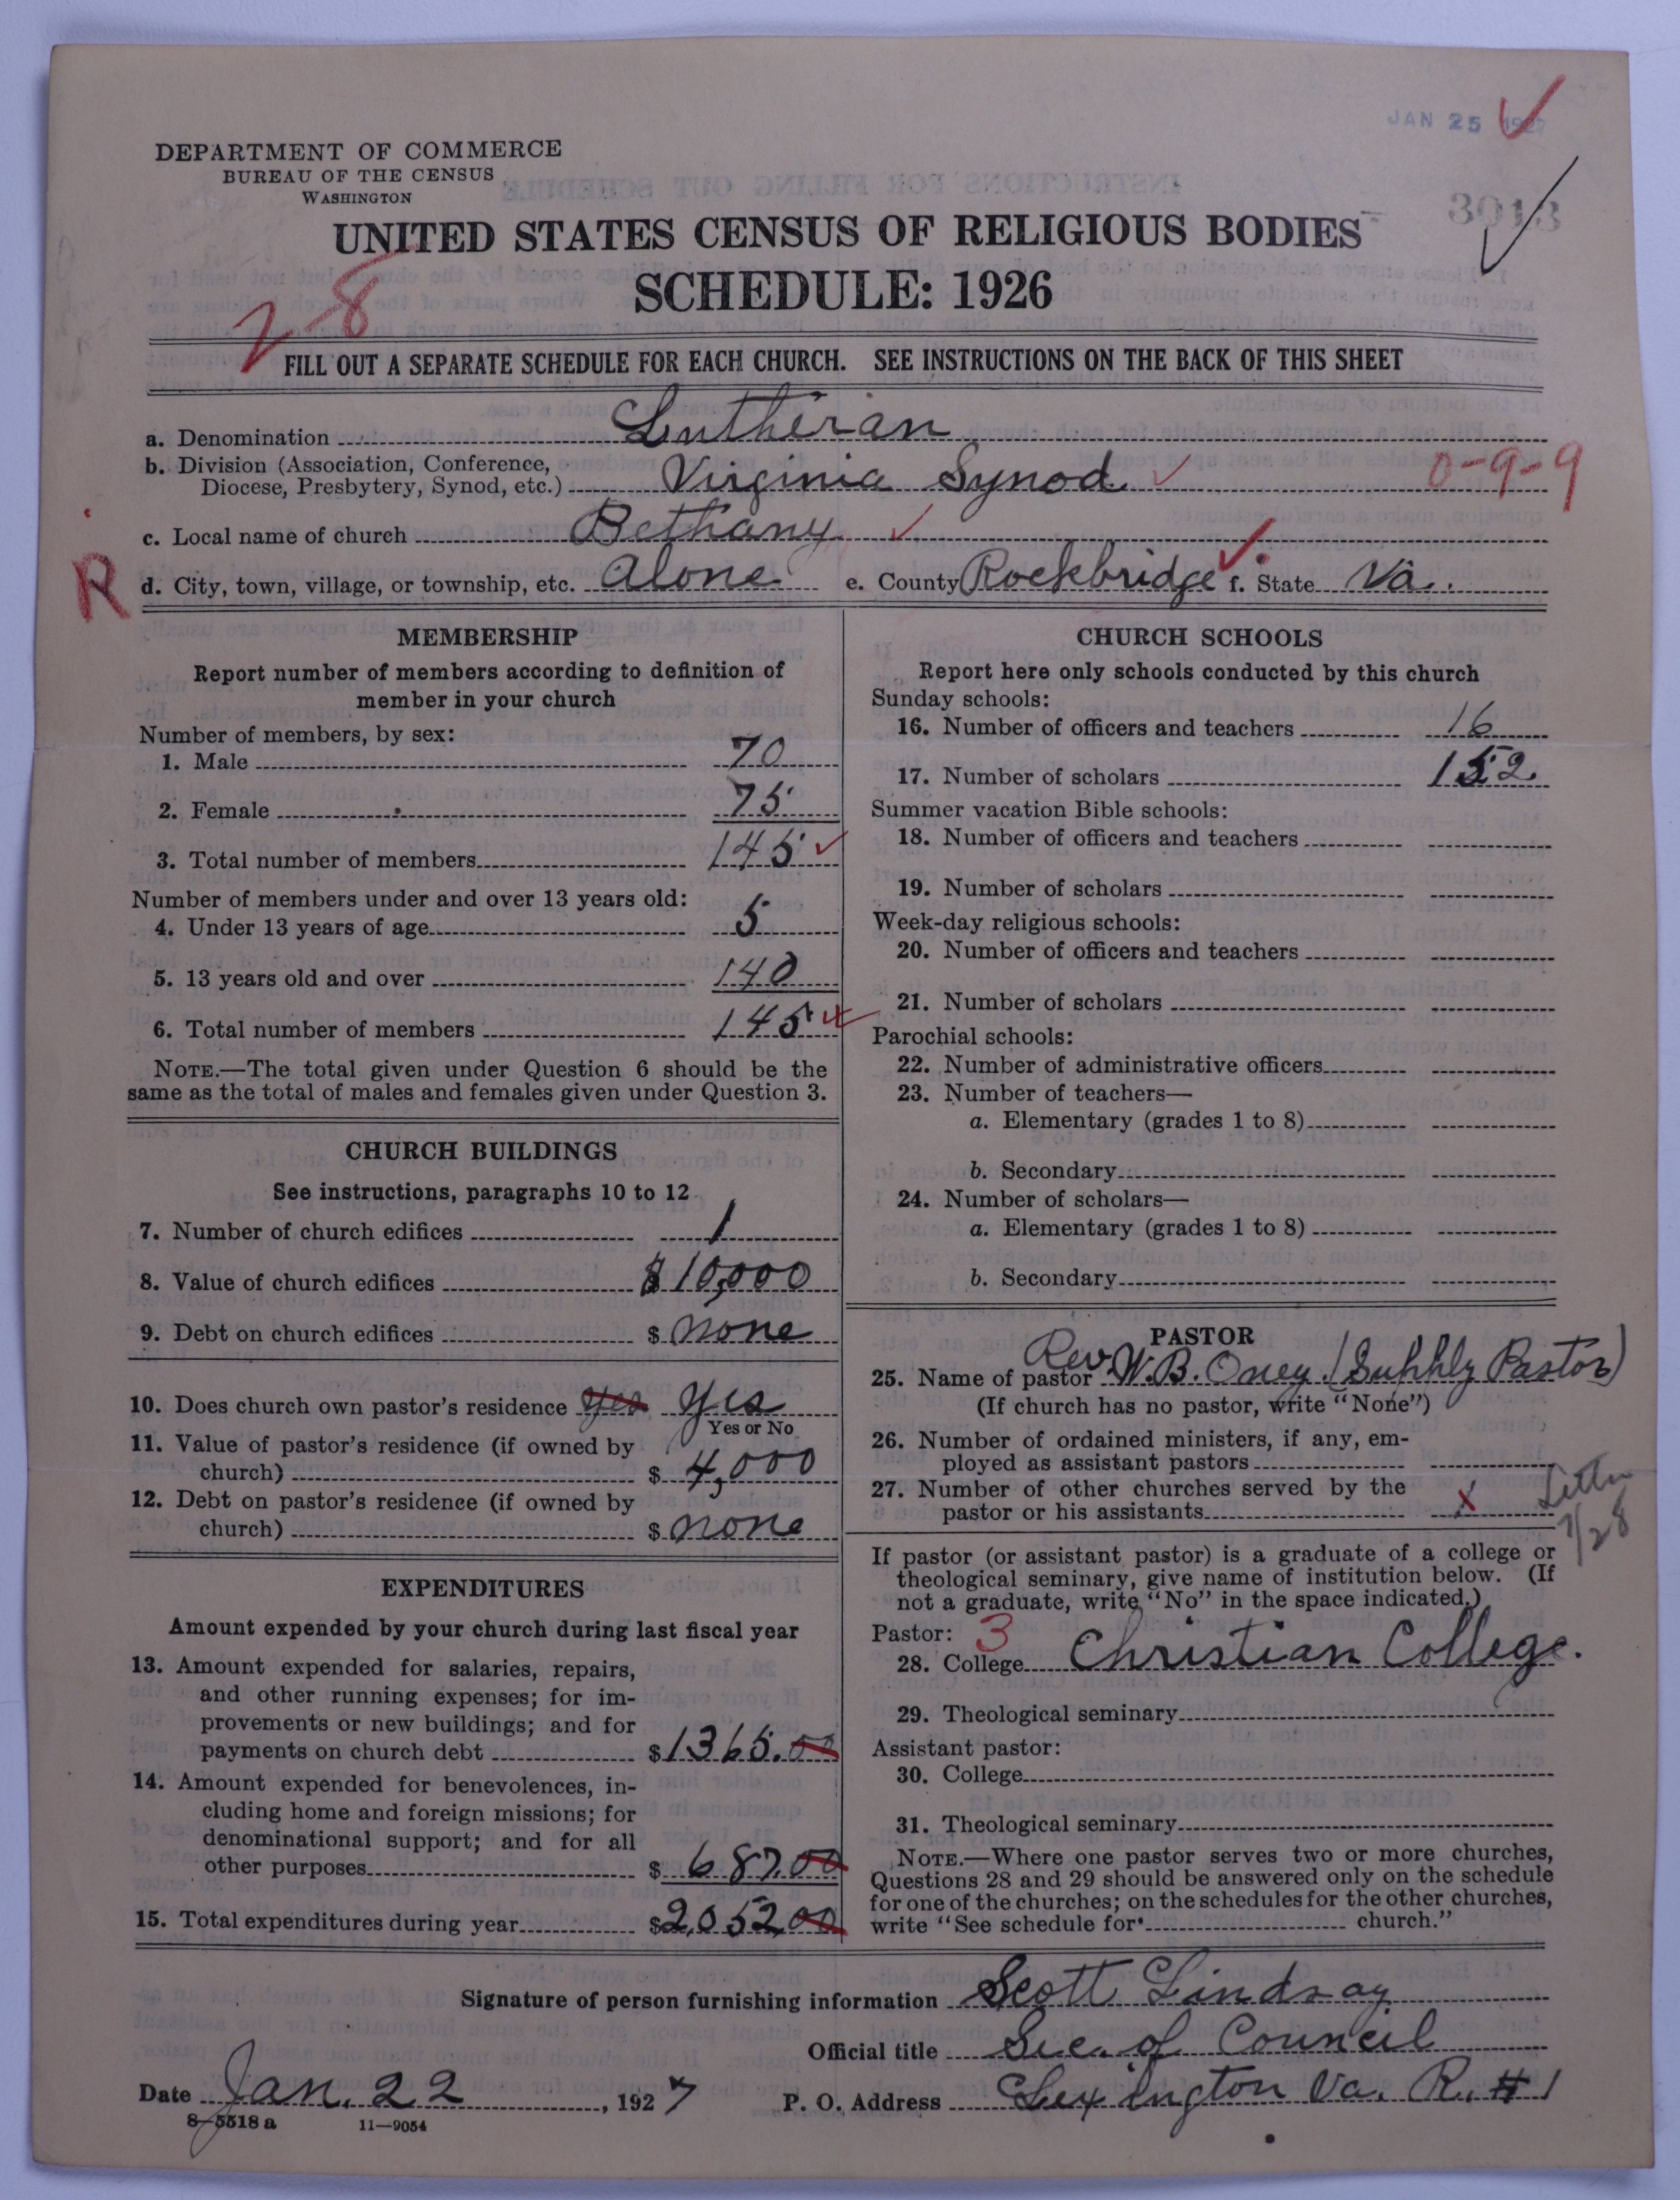 JAN 25 1927
3013
DEPARTMENT OF COMMERCE
BUREAU OF THE CENSUS
WASHINGTON
UNITED STATES CENSUS OF RELIGIOUS BODIES
SCHEDULE: 1926
28
FILL OUT A SEPARATE SCHEDULE FOR EACH CHURCH. SEE INSTRUCTIONS ON THE BACK OF THIS SHEET
a. Denomination Lutheran
b. Division (Association, Conference,
Diocese, Presbytery, Synod, etc.) Virginia Synod 0-9-9
c. Local name of church Bethany
R
d. City, town, village, or township, etc. Alone e. County Rockbridge f. State Va.
MEMBERSHIP
Report number of members according to definition of
member in your church
Number of members, by sex:
1. Male 70
2. Female 75
3. Total number of members 145
Number of members under and over 13 years old:
4. Under 13 years of age 5
5. 13 years old and over 140
6. Total number of members 145
NOTE.—The total given under Question 6 should be the
same as the total of males and females given under Question 3.
CHURCH BUILDINGS
See instructions, paragraphs 10 to 12
7. Number of church edifices 1
8. Value of church edifices $10,000
9. Debt on church edifices $ none
10. Does church own pastor's residence yes yes
Yes or No
11. Value of pastor's residence (if owned by
church) $ 4,000
12. Debt on pastor's residence (if owned by
church) $ none
EXPENDITURES
Amount expended by your church during last fiscal year
13. Amount expended for salaries, repairs,
and other running expenses; for im-
provements or new buildings; and for
payments on church debt $1365.00
14. Amount expended for benevolences, in-
cluding home and foreign missions; for
denominational support; and for all
other purposes $ 687.00
15. Total expenditures during year $2,052.00
CHURCH SCHOOLS
Report here only schools conducted by this church
Sunday schools:
16. Number of officers and teachers 16
17. Number of scholars 152
Summer vacation Bible schools:
18. Number of officers and teachers
19. Number of scholars
Week-day religious schools:
20. Number of officers and teachers
21. Number of scholars
Parochial schools:
22. Number of administrative officers
23. Number of teachers—
a. Elementary (grades 1 to 8)
b. Secondary
24. Number of scholars—
a. Elementary (grades 1 to 8)
b. Secondary
PASTOR
25. Name of pastor Rev. W.B. Oney. (Supply Pastor)
(If church has no pastor, write "None")
26. Number of ordained ministers, if any, em-
ployed as assistant pastors
27. Number of other churches served by the
pastor or his assistants x
Letter
7/28
If pastor (or assistant pastor) is a graduate of a college or
theological seminary, give name of institution below. (If
not a graduate, write "No" in the space indicated.)
Pastor: 3
28. College Christian College.
29. Theological seminary
Assistant pastor:
30. College
31. Theological seminary
NOTE.—Where one pastor serves two or more churches,
Questions 28 and 29 should be answered only on the schedule
for one of the churches; on the schedules for the other churches,
write "See schedule for church."
Signature of person furnishing information Scott Lindsay
Official title Sec. of Council
Date Jan. 22, 1927 P. O. Address Lexington Va. R. # 1
8-5518 a 11—9054